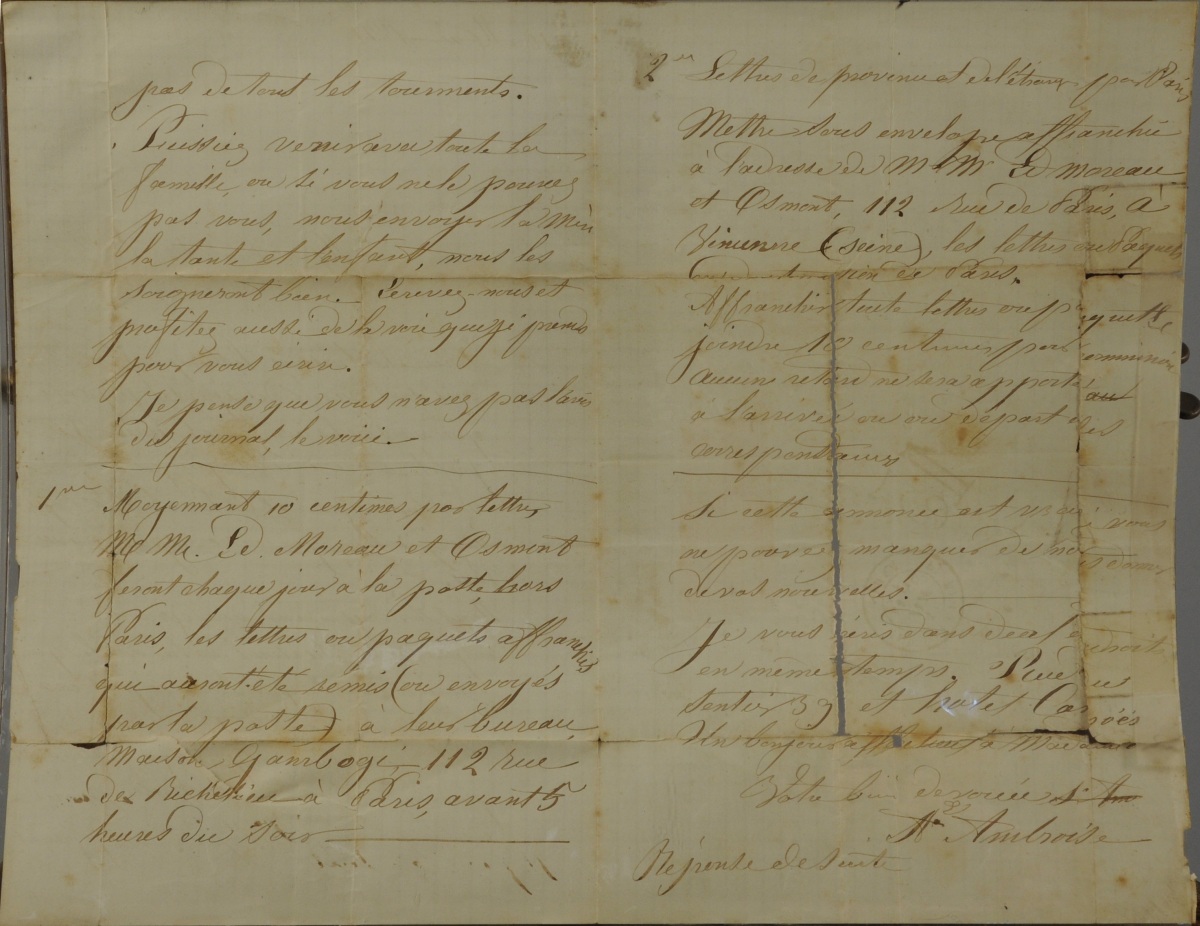 pas de tout les tourments.
Puissiez venir avec toute la
famille, ou si vous ne le pouvez
pas vous, nous envoyer la Mère
la tante et l'enfant, nous les
soigneront bien. Ecrivez-nous et
profitez aussi de la voie que je prends
pour vous écrire.
Je pense que vous n'avez pas l'avis
du journal, le voici.
1er Moyennant 10 centimes par lettre,
MM. Ed. Moreau et Osmont
feront chaque jour à la poste, hors
Paris, les lettres ou paquets affranchis
qui auront été remis (ou envoyés
par la poste) à leur bureau,
Maison Gambogi, 112 rue
de Richelieu à Paris, avant 5
heures du soir
2em Lettres de province et de l'étranger pour Paris
Mettre sous envelope affranchie
à l'adresse de M.M. Ed moreau
et Osmont, 112 rue de Paris, à
Vincennes (Seine), les lettres ou Paquets
de Paris.
Affranchir toute lettres ou paquette
joindre 10 centimes pour commission
aucune retard ne sera apporté au
à l'arrivée ou au départ des
correspondances
Si cette annonce est vrai, vous
ne pouvez manquer de nous donner
de vos nouvelles.
Je vous écris dans deux endroit
en même temps. Rue du
Sentier 39 et
Un bonjour affectueux à
Votre bien dévouée
Ambroise
Réponse de suite